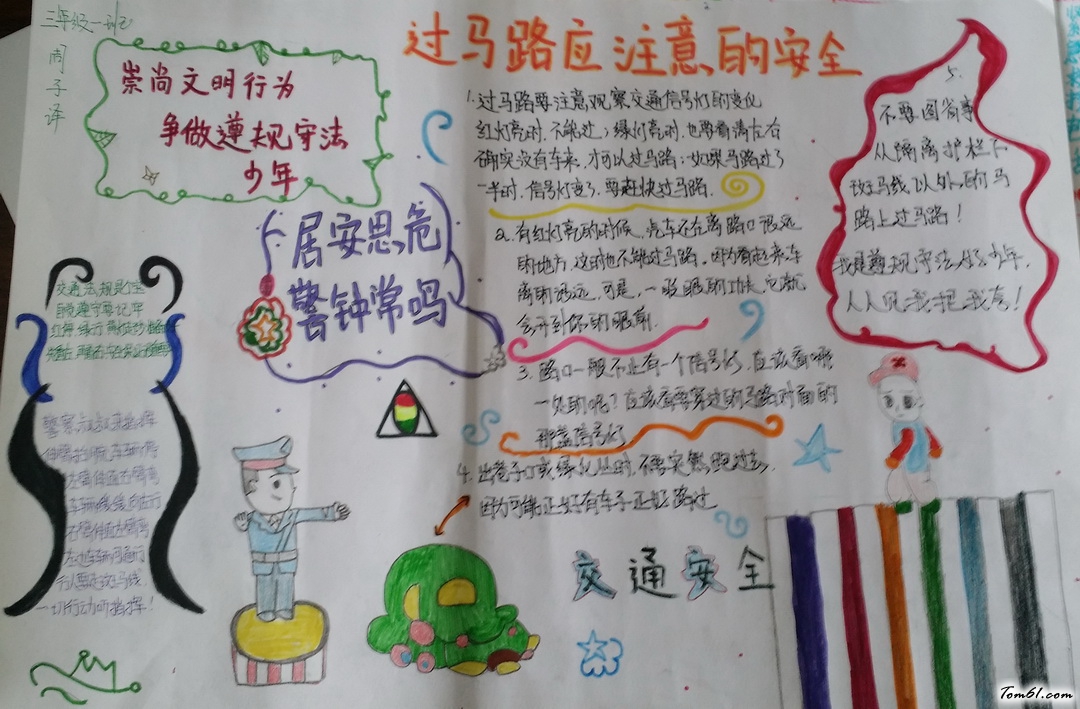 三年级一班
周子译
崇尚文明行为
争做遵规守法
少年
过马路应注意的安全
1.过马路要注意观察交通信号灯的变化
红灯亮时,不能过;绿灯亮时,也要看清左右
确实没有车来,才可以过马路;如果马路过了
一半时,信号灯变了,要赶快过马路.
居安思危
警钟常鸣
2.有红灯亮的时候,汽车还在离路口很远
的地方,这时也不能过马路,因为看起来车
离的很远,可是,一眨眼的功夫,它就
会开到你的眼前.
3.路口一般不止有一个信号灯,应该看哪
一处的呢?应该看要穿过的马路对面的
那盏信号灯
4.出巷子口或绿化丛时,不要突然跑过去,
因为可能正好有车子正好路过
5.
不要图省事
从隔离护栏下
斑马线以外的马
路上过马路!
我是遵规守法好少年,
人人见我把我夸!
交通法规是个宝
自觉遵守要记牢
警察叔叔来指挥
左臂伸直右臂弯
车辆缓缓向左行
右臂伸直左臂弯
行人要走斑马线
一切行动听指挥!
交通安全
Tom61.com